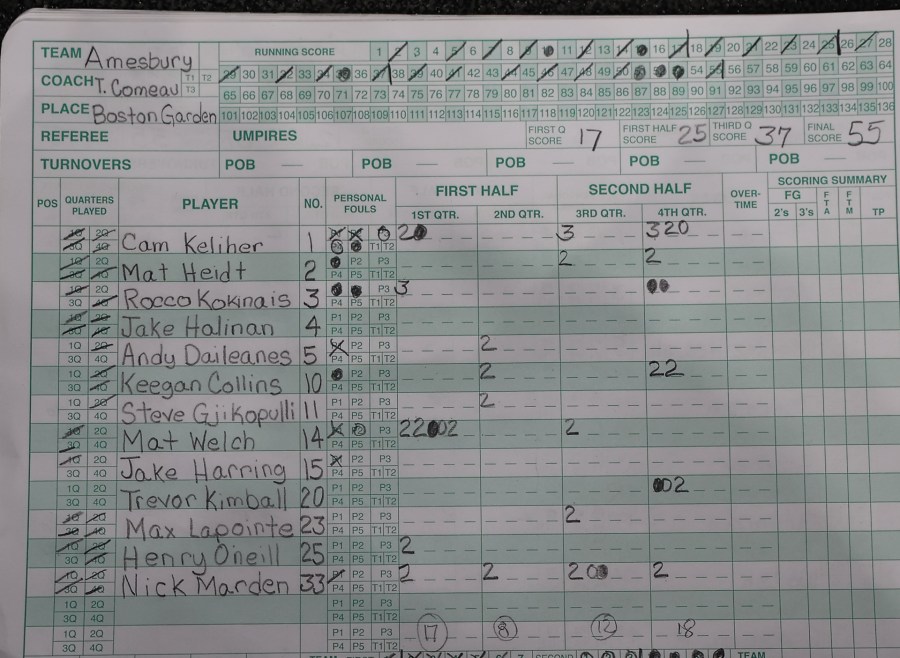 TEAM Amesbury RUNNING SCORE 1 2 3 4 5 6 7 8 9 10 11 12 13 14 15 16 17 18 19 20 21 22 23 24 25 26 27 28
COACH T. Comeau T1 T2 T3 29 30 31 32 33 34 35 36 37 38 39 40 41 42 43 44 45 46 47 48 49 50 51 52 53 54 55 56 57 58 59 60 61 62 63 64
65 66 67 68 69 70 71 72 73 74 75 76 77 78 79 80 81 82 83 84 85 86 87 88 89 90 91 92 93 94 95 96 97 98 99 100
PLACE Boston Garden 101 102 103 104 105 106 107 108 109 110 111 112 113 114 115 116 117 118 119 120 121 122 123 124 125 126 127 128 129 130 131 132 133 134 135 136
REFEREE UMPIRES FIRST Q SCORE 17 FIRST HALF SCORE 25 THIRD Q SCORE 37 FINAL SCORE 55
TURNOVERS POB — POB — POB — POB — POB —
POS QUARTERS PLAYED PLAYER NO. PERSONAL FOULS FIRST HALF SECOND HALF OVER-TIME SCORING SUMMARY
1ST QTR. 2ND QTR. 3RD QTR. 4TH QTR. FG 2's 3's FTA FTM TP
1Q 2Q 3Q 4Q Cam Keliher 1 T1 T2 2 3 320
1Q 2Q 3Q 4Q Mat Heidt 2 P2 P3 P4 P5 T1 T2 2 2
1Q 2Q 3Q 4Q Rocco Kokinais 3 P3 P4 P5 T1 T2 3
1Q 2Q 3Q 4Q Jake Halinan 4 P1 P2 P3 P4 P5 T1 T2
1Q 2Q 3Q 4Q Andy Daileanes 5 P2 P3 P4 P5 T1 T2 2
1Q 2Q 3Q 4Q Keegan Collins 10 P2 P3 P4 P5 T1 T2 2 22
1Q 2Q 3Q 4Q Steve Gjikopulli 11 P1 P2 P3 P4 P5 T1 T2 2
1Q 2Q 3Q 4Q Mat Welch 14 P3 P4 P5 T1 T2 22 02 2
1Q 2Q 3Q 4Q Jake Harring 15 P2 P3 P4 P5 T1 T2
1Q 2Q 3Q 4Q Trevor Kimball 20 P1 P2 P3 P4 P5 T1 T2 02
1Q 2Q 3Q 4Q Max Lapointe 23 P1 P2 P3 P4 P5 T1 T2 2
1Q 2Q 3Q 4Q Henry Oneill 25 P1 P2 P3 P4 P5 T1 T2 2
1Q 2Q 3Q 4Q Nick Marden 33 P1 P2 P3 P4 P5 T1 T2 2 2 20 2
1Q 2Q 3Q 4Q P1 P2 P3 P4 P5 T1 T2
1Q 2Q 3Q 4Q P1 P2 P3 P4 P5 T1 T2 17 8 12 18